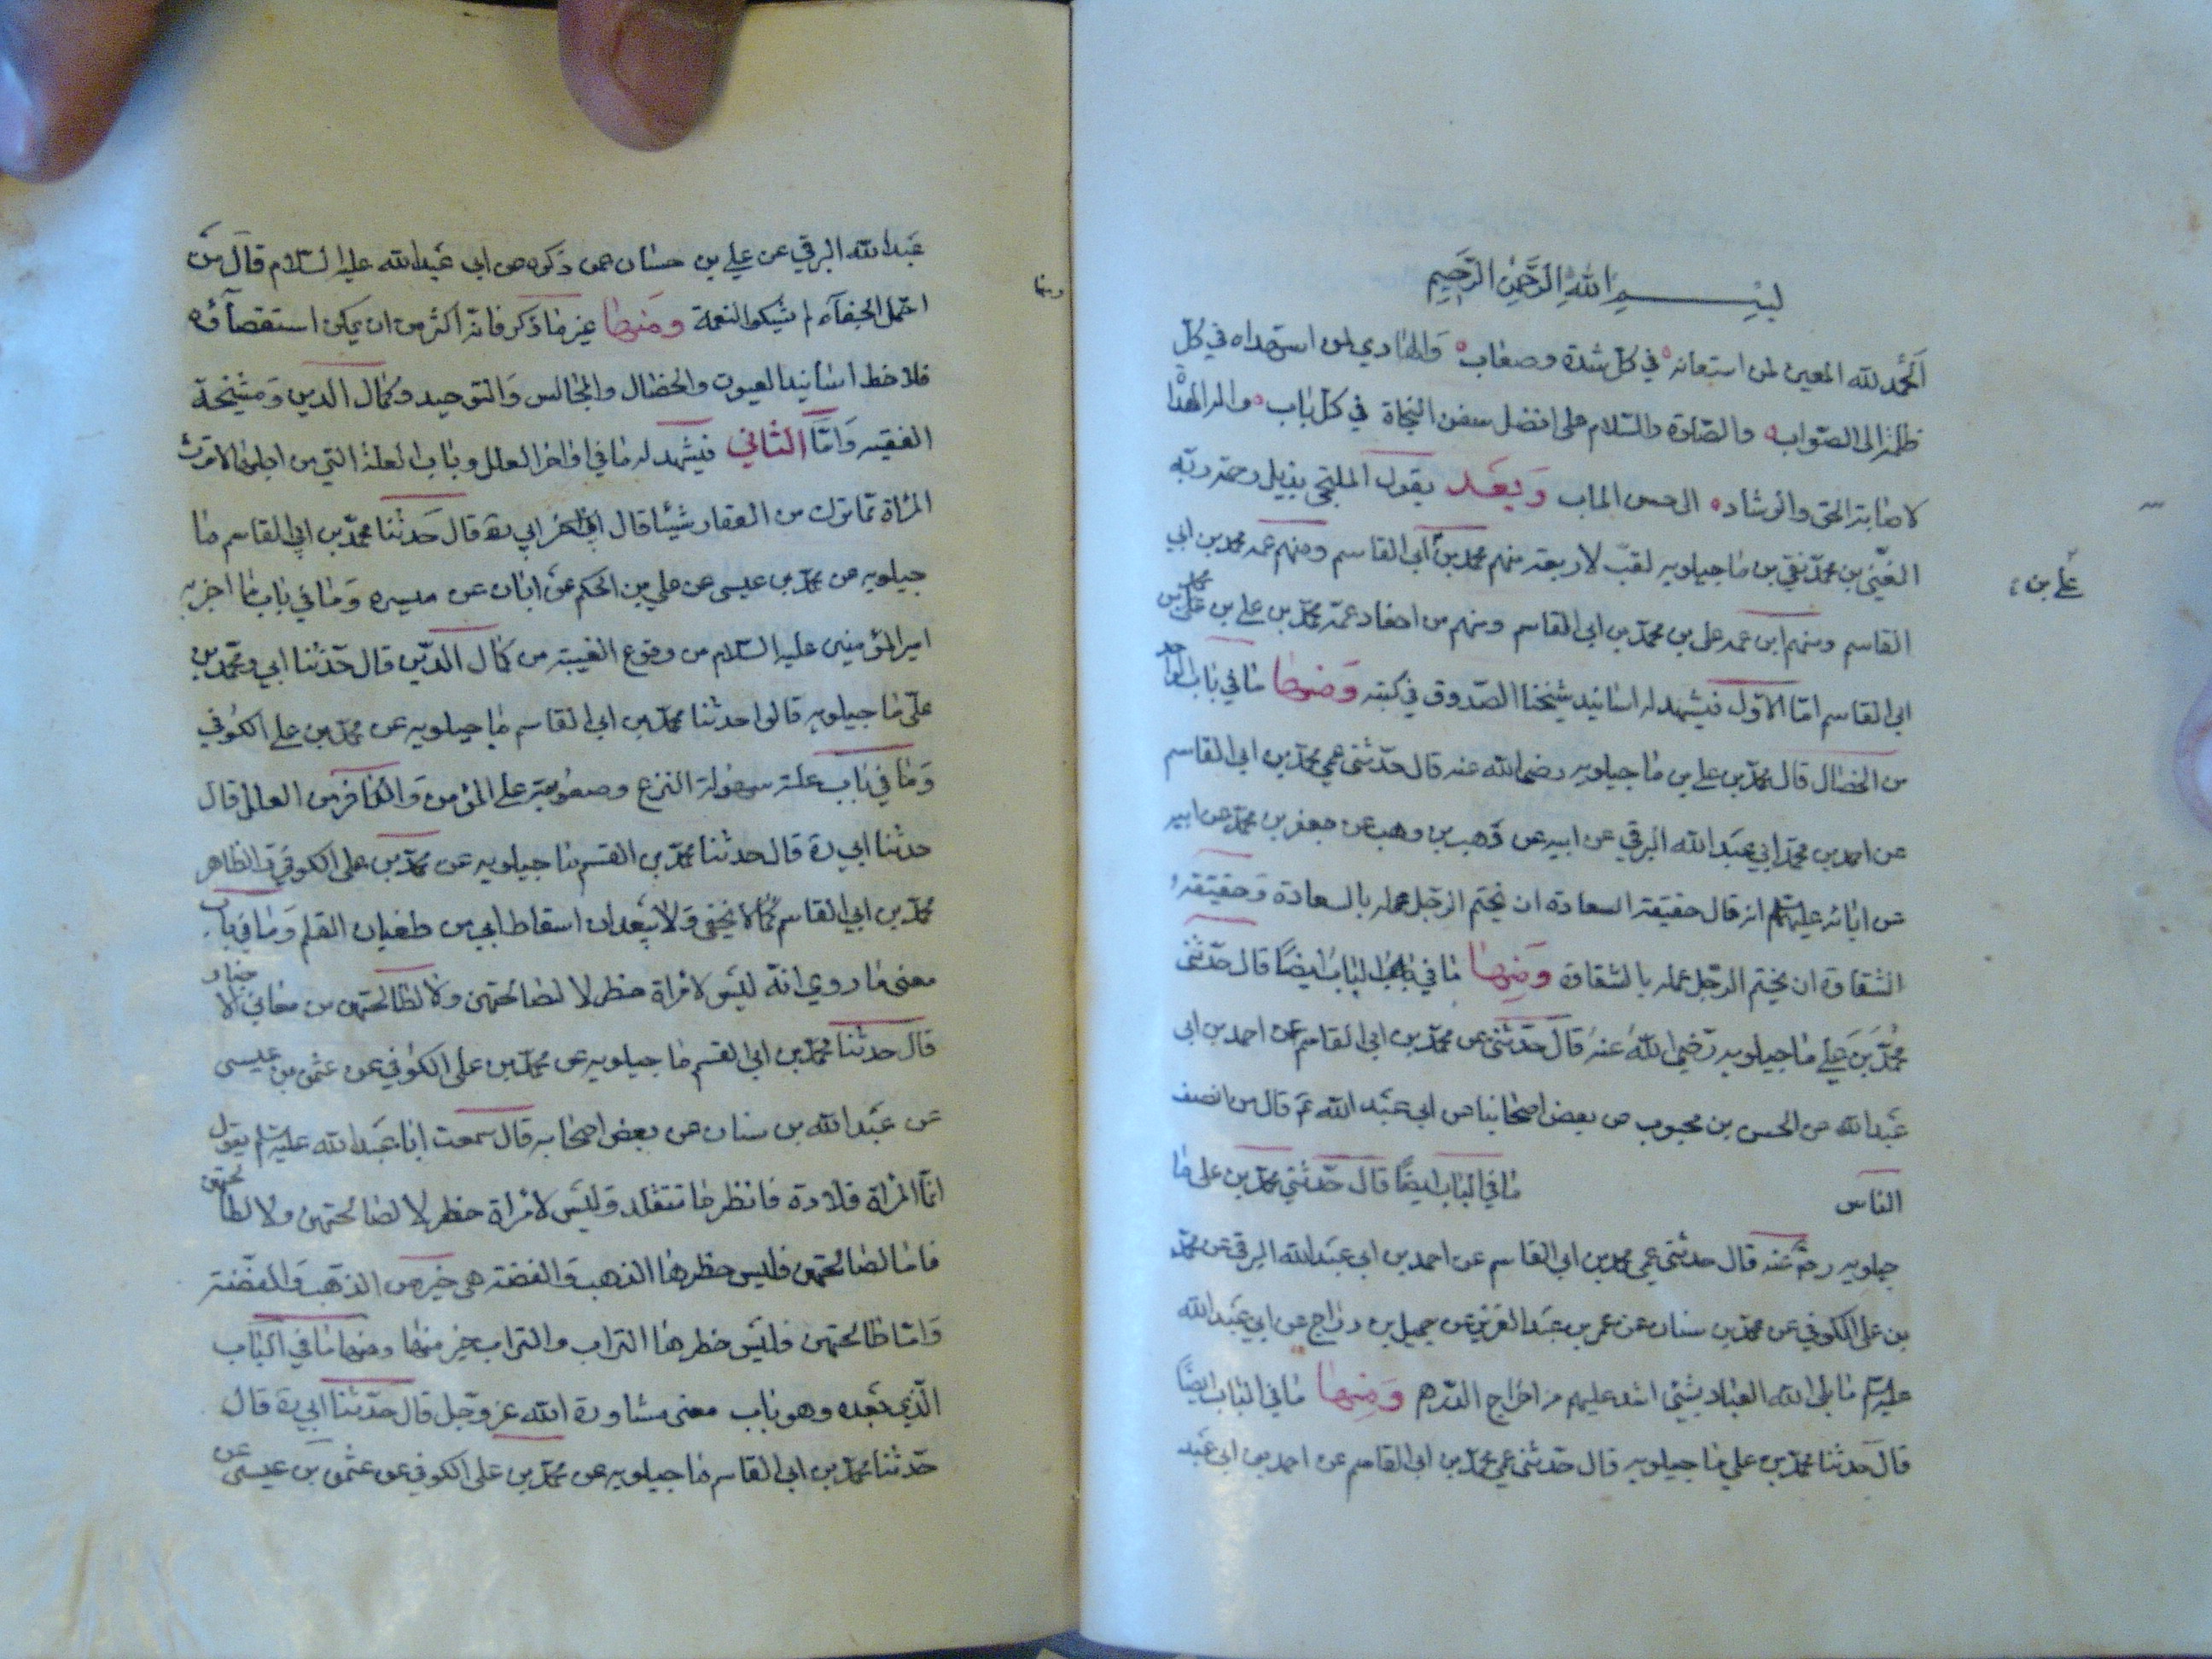 بسم الله الرحمن الرحيم
الحمد لله المعين لمن استعانه في كل شدة وصعاب والهادي لمن استهداه في كل
الى الصواب والصلوة والسلام على افضل سفن النجاة في كل باب
لاصابة الحق والرشاد الى حسن الماب وبعد يقول الملتجي بذيل رحمة ربه
الغني بن محمد تقي بن ماجيلويه لقب لاربعة منهم محمد بن ابي القاسم ومنهم عمه محمد بن ابي
علي بن
القاسم ومنهم ابن عمه علي بن محمد بن ابي القاسم ومنهم من احفاد عمه محمد بن علي بن محمد بن
ابي القاسم اما الاول فيشهد له اسانيد شيخنا الصدوق في كتبه ومنها ما في باب الواحد
من الخصال قال محمد بن علي بن ماجيلويه رضي الله عنه قال حدثني عمي محمد بن ابي القاسم
عن احمد بن محمد ابي عبد الله البرقي عن ابيه عن وهب بن وهب عن جعفر بن محمد عن ابيه
عن ابائه عليهم انه قال حقيقة السعادة ان يختم الرجل عمله بالسعادة وحقيقة
الشقاوة ان يختم الرجل عمله بالشقاوة ومنها ما في الباب ايضا قال حدثني
محمد بن علي ماجيلويه رضي الله عنه قال حدثني عن محمد بن ابي القاسم عن احمد بن ابي
عبد الله عن الحسن بن محبوب عن بعض اصحابنا عن ابي عبد الله ع قال من انصف
الناس ما في الباب ايضا قال حدثني محمد بن علي ما
جيلويه عنه قال حدثني عمي محمد بن ابي القاسم عن احمد بن ابي عبد الله البرقي عن محمد
بن علي الكوفي عن محمد بن سنان عن عمر بن عبد العزيز عن جميل بن دراج عن ابي عبد الله
ما بلى الله العباد بشيئ اشد عليهم من اخراج الدرهم ومنها ما في الباب ايضا
قال حدثنا محمد بن علي ماجيلويه قال حدثني عمي محمد بن ابي القاسم عن احمد بن ابي عبد
عبد الله البرقي عن علي بن حسان عمن ذكره عن ابي عبد الله عليه السلام قال من
احتمل الجفاء لم يشكو النعمة ومنها غير ما ذكر فانه اكثر من ان يمكن استقصاؤه
فلاحظ اسانيد العيون والخصال والمجالس والتوحيد وكمال الدين ومشيخة
الفقيه واما الثاني فيشهد له ما في اواخر العلل وباب العلة التي من اجلها لا ترث
المراة مما ترك من العقار شيئا قال ابي قال حدثنا محمد بن ابي القاسم ما
جيلويه عن محمد بن عيسى عن علي بن الحكم عن ابان عن ميسره وما في باب ما اخبر به
امير المؤمنين عليه السلام من وقوع الغيبة من كمال الدين قال حدثنا ابي ومحمد بن
علي ماجيلويه قالوا حدثنا محمد بن ابي القاسم ماجيلويه عن محمد بن علي الكوفي
وما في باب علة سهولة النزع وصعوبته على المؤمن والكافر من العلل قال
حدثنا ابي ره قال حدثنا محمد بن القسم ماجيلويه عن محمد بن علي الكوفي الظاهر
محمد بن ابي القاسم كما لا يخفى ولا يبعد ان اسقاط ابي من طغيان القلم وما في باب
معنى ما روي انه ليس لامراة خطر لا لصالحتهن ولا لطالحتهن من معاني الاخبار
قال حدثنا محمد بن ابي القسم ماجيلويه عن محمد بن علي الكوفي عن عثمن بن عيسى
عن عبد الله بن سنان عن بعض اصحابه قال سمعت ابا عبد الله عليه يقول
انما المراة قلادة فانظر ما تتقلد وليس لامراة خطر لا لصالحتهن ولا لطالحتهن
فاما لصالحتهن فليس خطرها الذهب والفضة هي خير من الذهب والفضة
واما طالحتهن فليس خطرها التراب والتراب خير منها ومنها ما في الباب
الذي بعده وهو باب معنى مشاورة الله عز وجل قال حدثنا ابي ره قال
حدثنا محمد بن ابي القاسم ماجيلويه عن محمد بن علي الكوفي عن عثمن بن عيسى عن